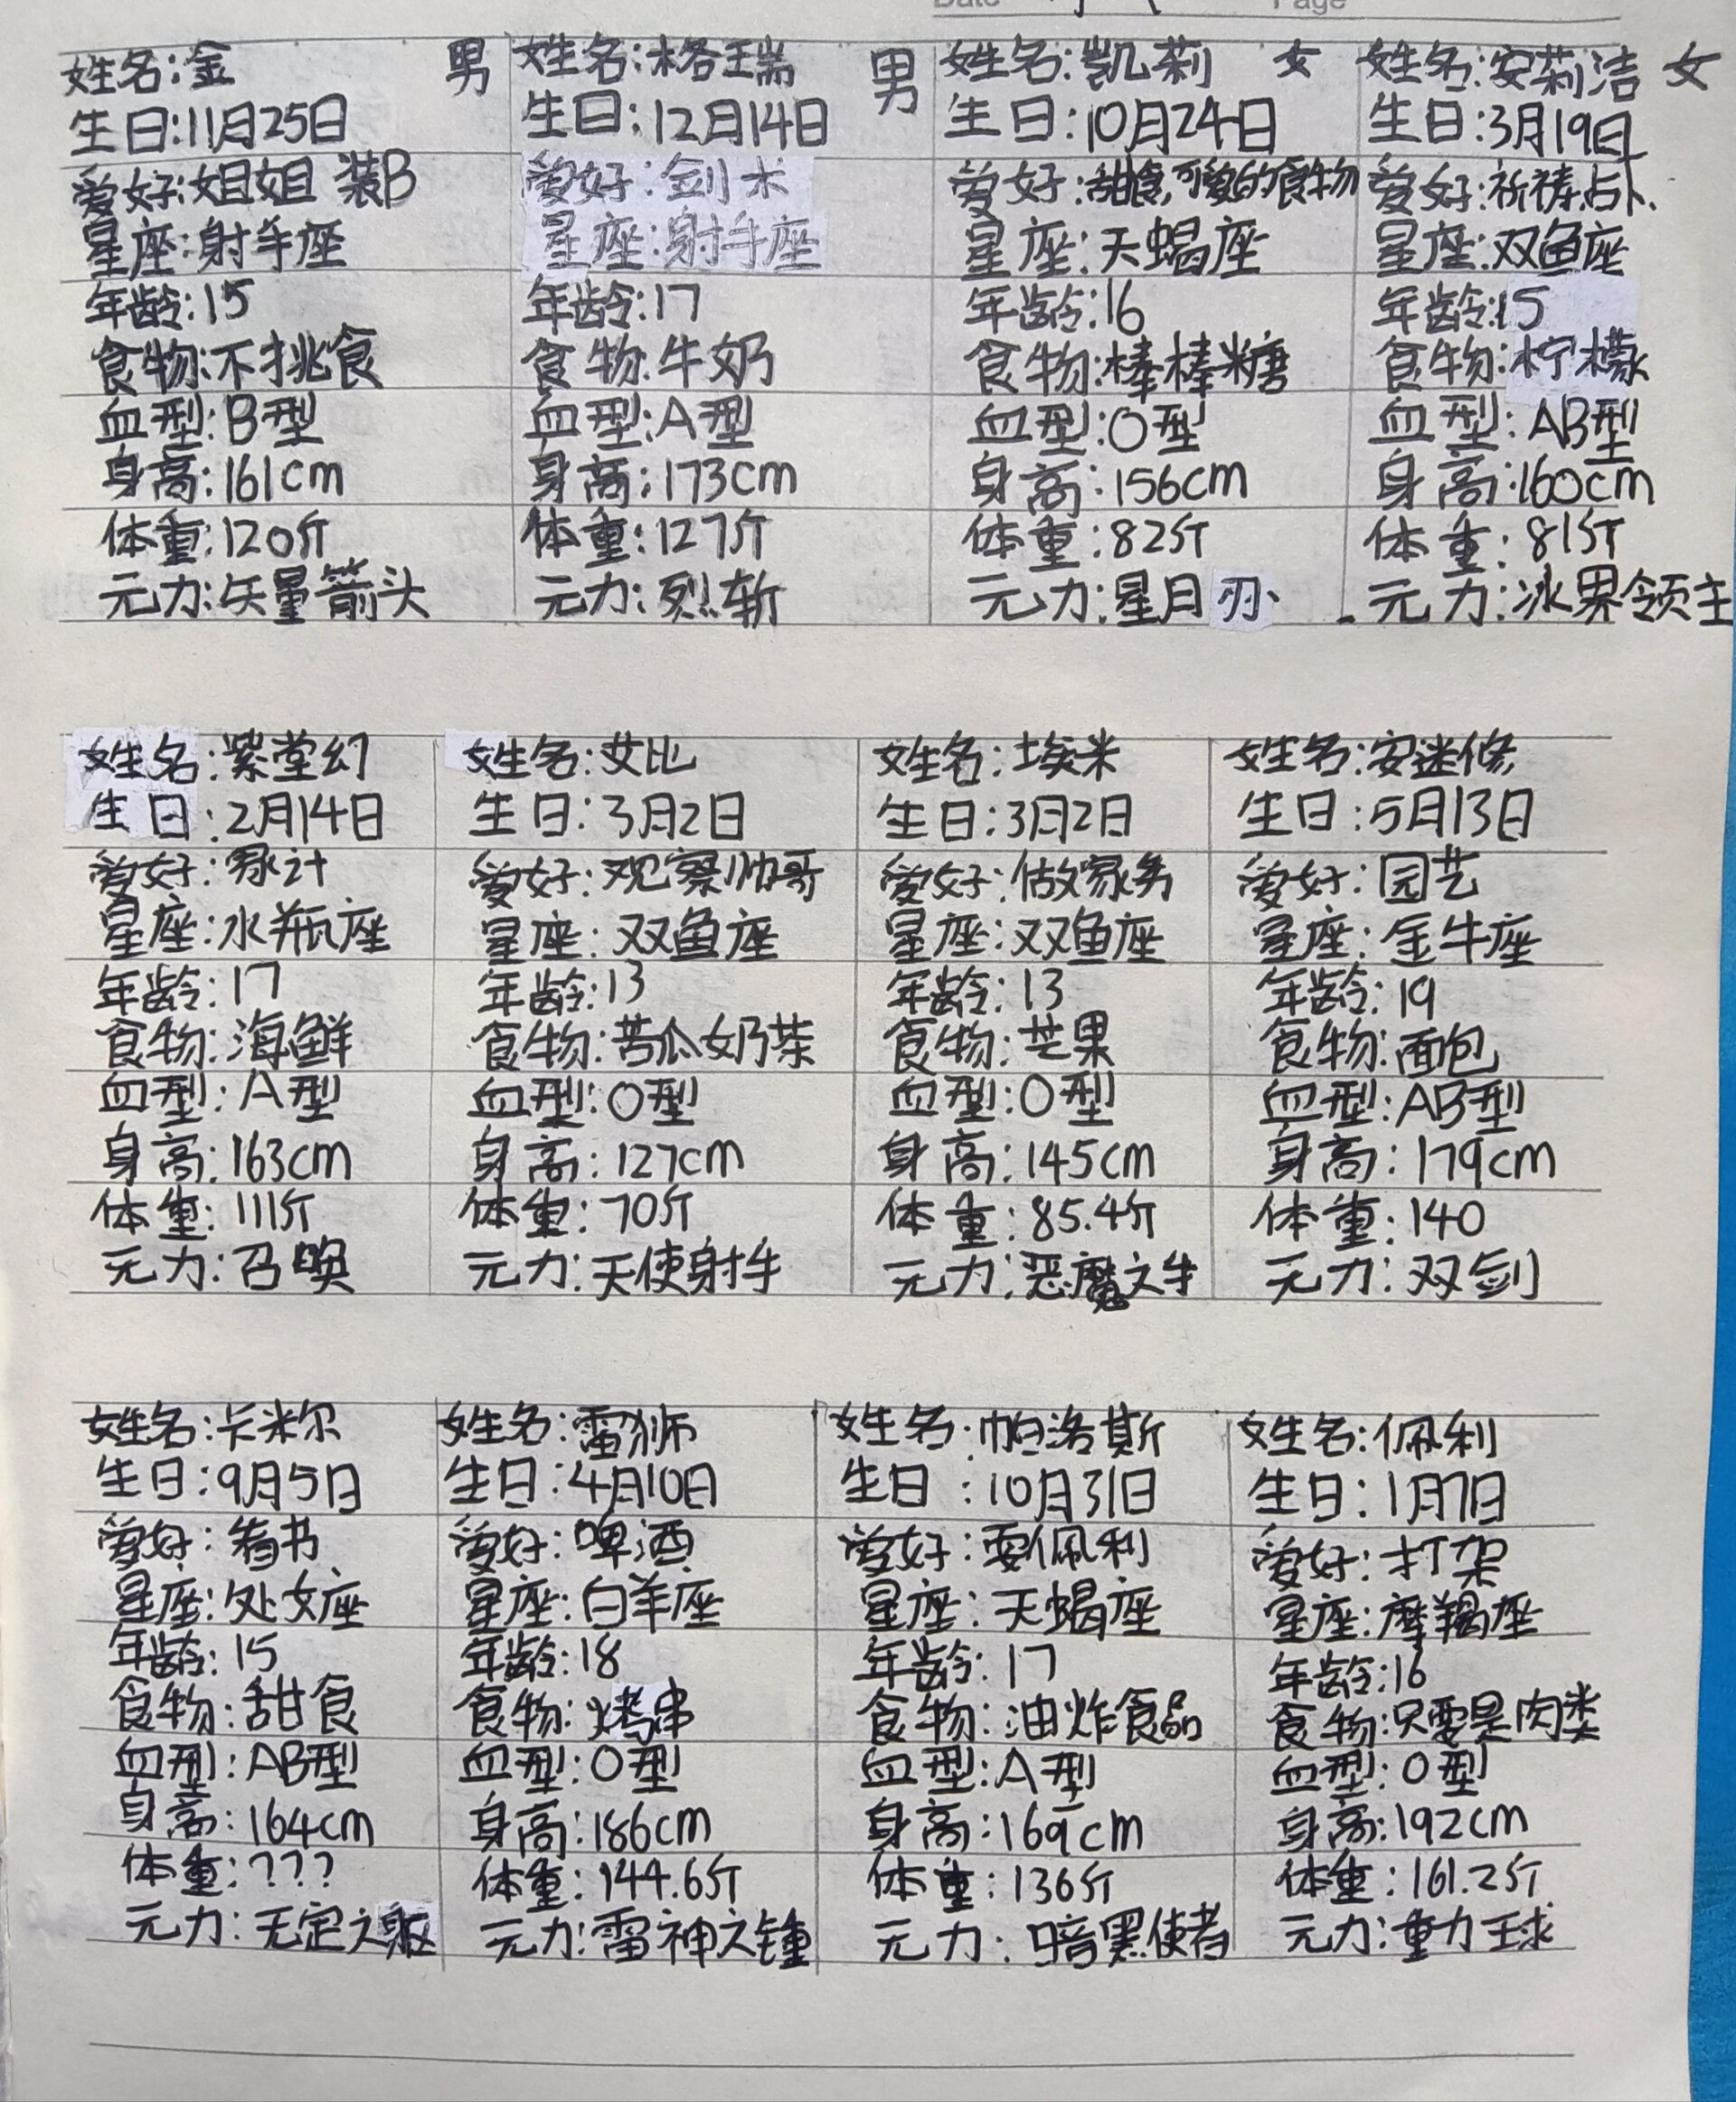 Date
Page
姓名:金 男
生日:11月25日
爱好:姐姐 装B
星座:射手座
年龄:15
食物:不挑食
血型:B型
身高:161cm
体重:120斤
元力:矢量箭头
姓名:格瑞 男
生日:12月14日
爱好:剑术
星座:射手座
年龄:17
食物:牛奶
血型:A型
身高:173cm
体重:127斤
元力:烈斩
姓名:凯莉 女
生日:10月24日
爱好:甜食,可爱的食物
星座:天蝎座
年龄:16
食物:棒棒糖
血型:O型
身高:156cm
体重:82斤
元力:星月刃
姓名:安莉洁 女
生日:3月19日
爱好:祈祷,占卜.
星座:双鱼座
年龄:15
食物:柠檬
血型:AB型
身高:160cm
体重:81斤
元力:冰界领主
姓名:紫堂幻
生日:2月14日
爱好:家计
星座:水瓶座
年龄:17
食物:海鲜
血型:A型
身高:163cm
体重:111斤
元力:召唤
姓名:艾比
生日:3月2日
爱好:观察帅哥
星座:双鱼座
年龄:13
食物:苦瓜奶茶
血型:O型
身高:127cm
体重:70斤
元力:天使射手
姓名:埃米
生日:3月2日
爱好:做家务
星座:双鱼座
年龄:13
食物:芒果
血型:O型
身高:145cm
体重:85.4斤
元力:恶魔之牛
姓名:安迷修
生日:5月13日
爱好:园艺
星座:金牛座
年龄:19
食物:面包
血型:AB型
身高:179cm
体重:140
元力:双剑
姓名:卡米尔
生日:9月5日
爱好:看书
星座:处女座
年龄:15
食物:甜食
血型:AB型
身高:164cm
体重:???
元力:无定之躯
姓名:雷狮
生日:4月10日
爱好:啤酒
星座:白羊座
年龄:18
食物:烤串
血型:O型
身高:186cm
体重:144.6斤
元力:雷神之锤
姓名:帕洛斯
生日:10月31日
爱好:耍佩利
星座:天蝎座
年龄:17
食物:油炸食品
血型:A型
身高:169cm
体重:136斤
元力:暗黑使者
姓名:佩利
生日:1月7日
爱好:打架
星座:摩羯座
年龄:16
食物:只要是肉类
血型:O型
身高:192cm
体重:161.2斤
元力:重力球